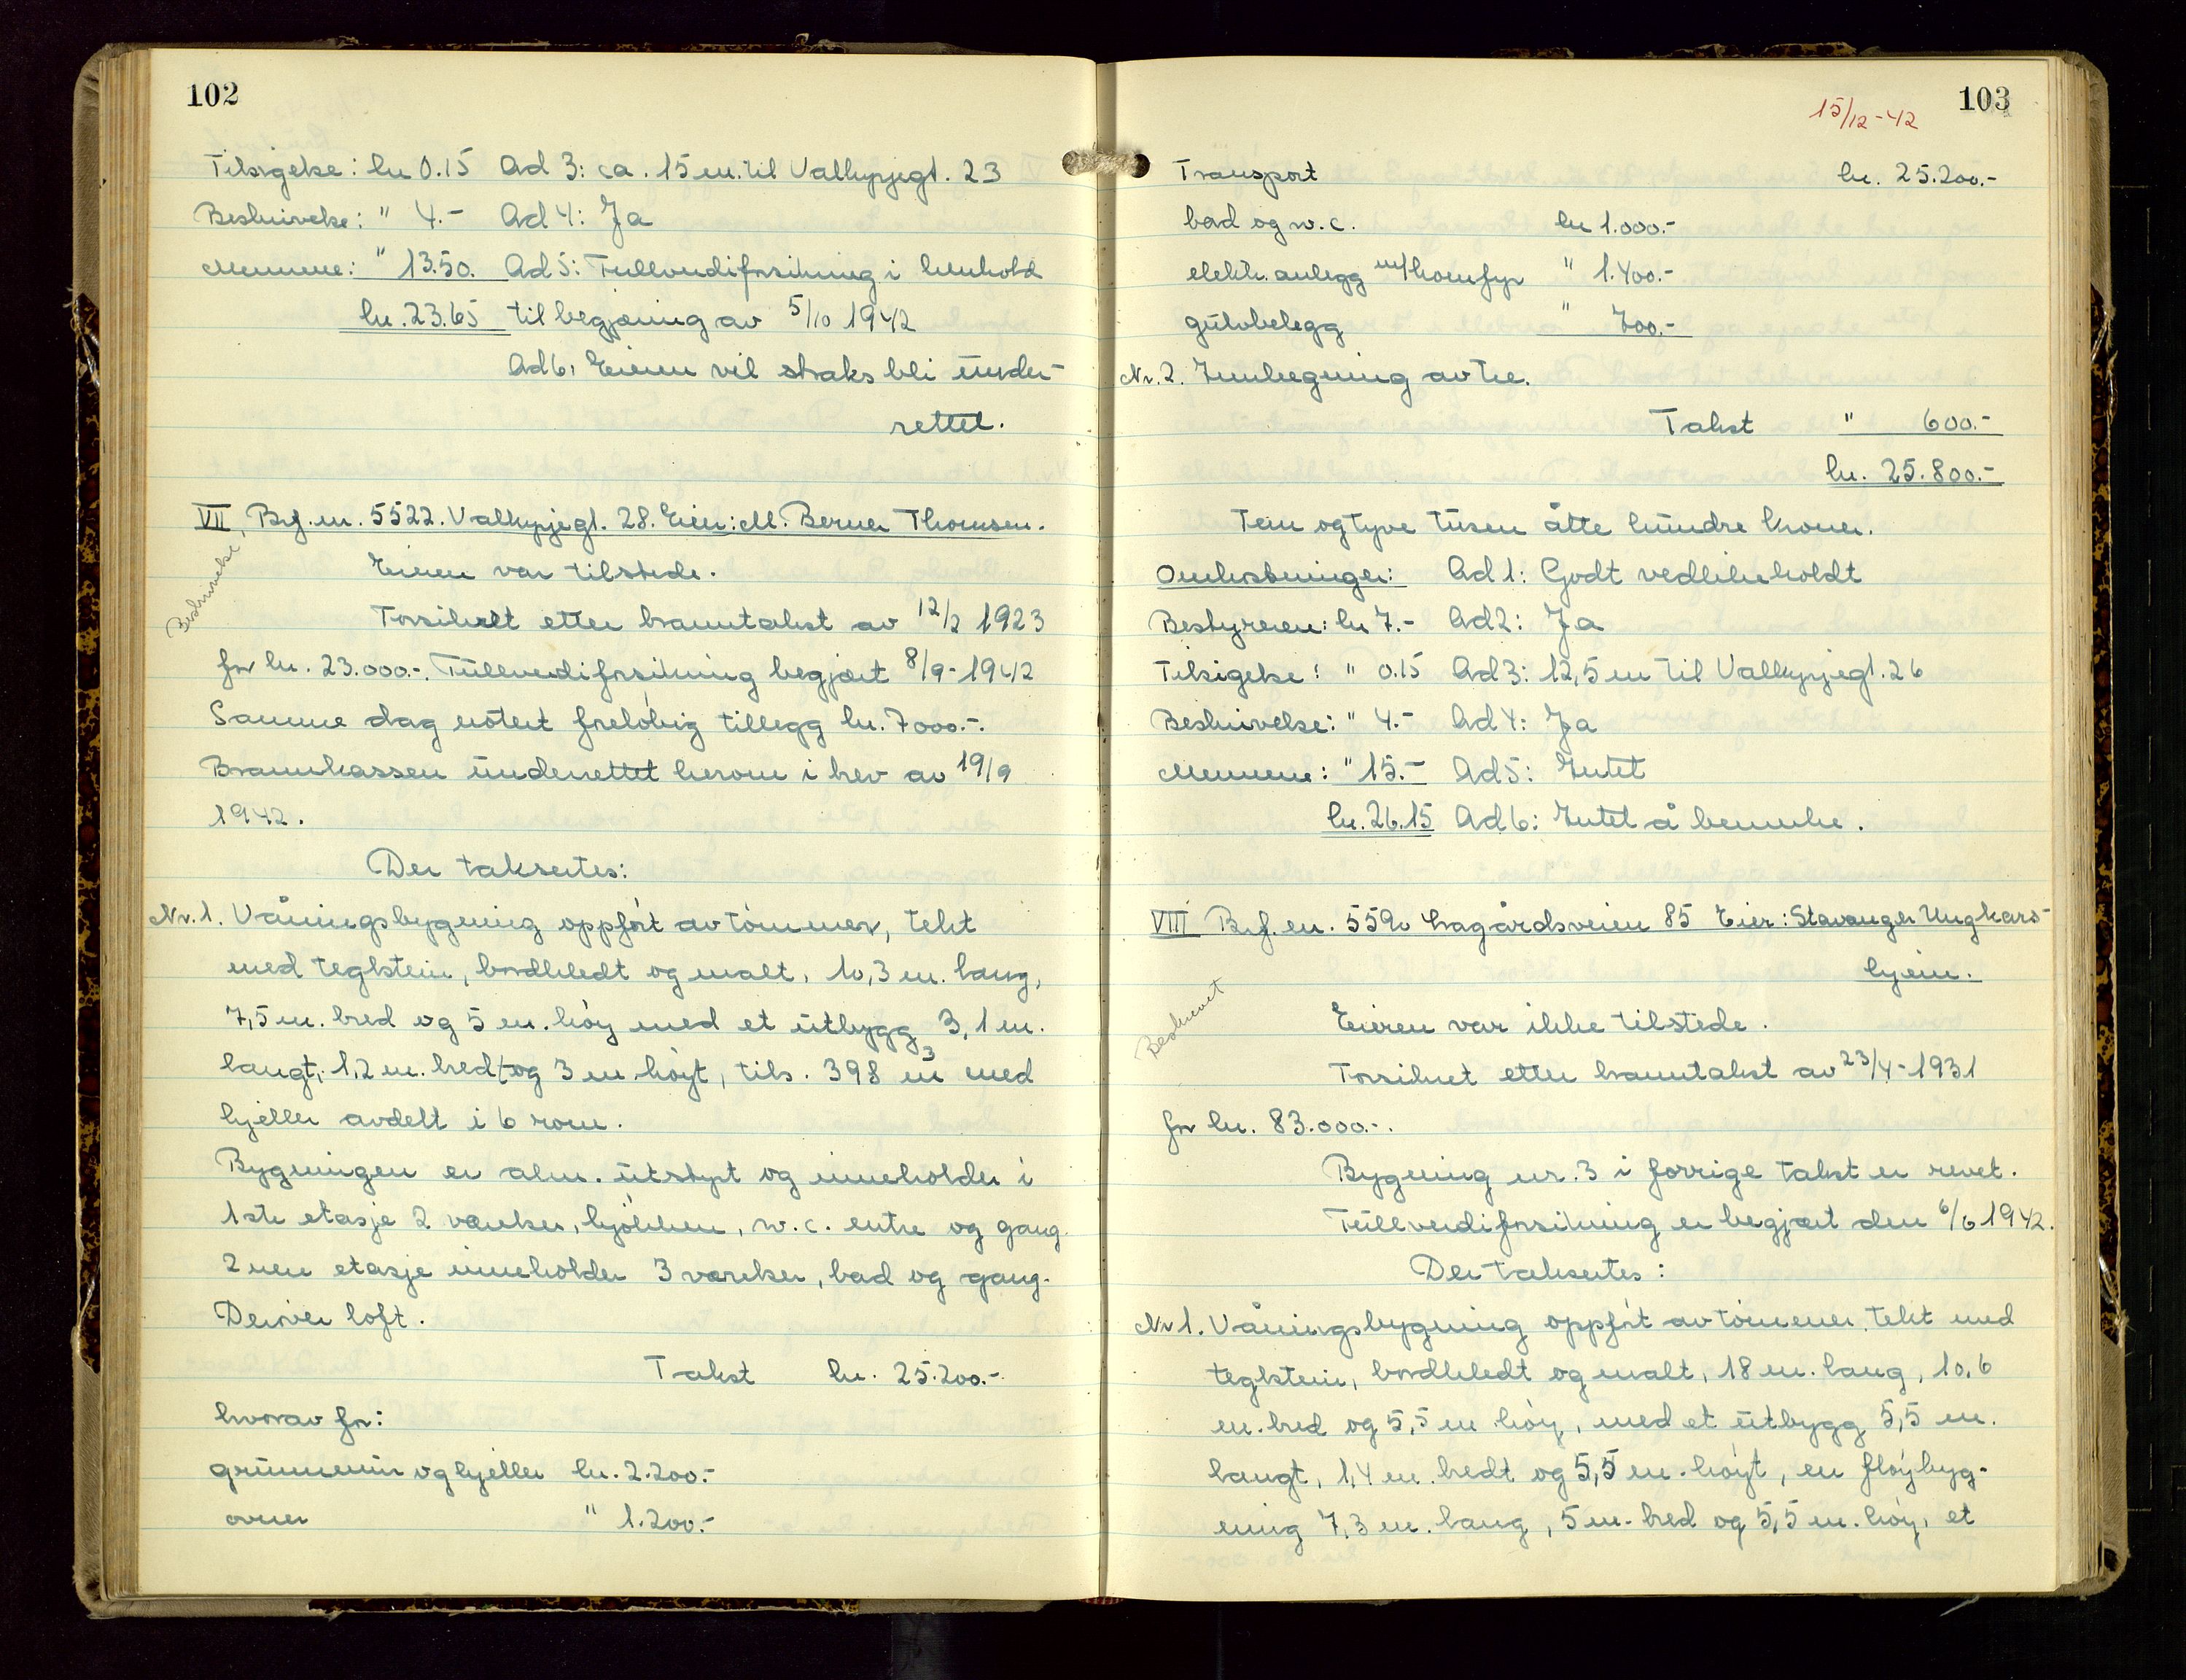 102
Tilsigelse: kr 0.15 Ad 3: ca. 15 m. til Valkyrjegt. 23
Beskrivelse: " 4.- Ad 4: Ja
Mennene: " 13.50. Ad 5: Fullverdiforsikring i henhold
kr. 23.65 til begjæring av 5/10 1942
Ad 6, Eieren vil straks bli under-
rettet.
VII, Brf. nr. 5522. Valkyrjegt. 28. Eier: M. Berner Thomsen.
Beskrivelse
Eieren var tilstede.
Forsikret etter branntakst av 12/2 1923
for kr. 23.000.-. Fullverdiforsikring begjært 8/9-1942
Samme dag notert foreløbig tillegg kr. 7000.-.
Brannkassen underrettet herom i brev av 19/9
1942.
Der takseertes:
Nr. 1. Våningsbygning oppført av tømmer, tekt
med teglstein, bordkledt og malt, 10,3 m. lang,
7,5 m. bred og 5 m. høy med et utbygg 3,1 m.
langt, 1,2 m. bredt og 3 m høyt, tils. 398 m3 med
kjeller avdelt i 6 rom.
Bygningen er alm. utstyrt og inneholder i
1ste etasje 2 værelser, kjøkken, w.c. entre og gang.
2nen etasje inneholder 3 værelser, bad og gang.
Derover loft.
Takst kr. 25.200.-
hvorav for:
grunnmur og kjeller kr. 2.200.-
ovner " 1.200.-
103
15/12-42
Transport kr. 25.200.-
bad og w.c. kr 1.000.-
elektr. anlegg m/komfyr " 1.400.-
gulvbelegg " 700.-
Nr. 2. Innhegning av tre.
Takst " 600.-
kr. 25.800.-
Fem og tyve tusen åtte hundre kroner.
Omkostninger: Ad 1: Godt vedlikeholdt
Bestyreren: kr 7.- Ad 2: Ja
Tilsigelse: " 0.15 Ad 3: 12,5 m til Valkyrjegt. 26
Beskrivelse: " 4.- Ad 4: Ja
Mennene: " 15.- Ad 5: Intet
kr. 26.15 Ad 6: Intet å bemerke.
VIII Brf. nr. 559o Lagårdsveien 85 Eier: Stavanger Ungkars-
hjem.
Beskrevet
Eieren var ikke tilstede.
Forsikret etter branntakst av 23/4-1931
for kr. 83.000.-.
Bygning nr. 3 i forrige takst er revet.
Fullverdiforsikring er begjært den 6/6 1942.
Der takseertes:
Nr 1. Våningsbygning oppført av tømmer, tekt med
teglstein, bordkledt og malt, 18 m. lang, 10,6
m. bred og 5,5 m høy, med et utbygg 5,5 m.
langt, 1,4 m. bredt og 5,5 m. høyt, en fløybyg-
ning 7,3 m. lang, 5 m. bred og 5,5 m. høy, et